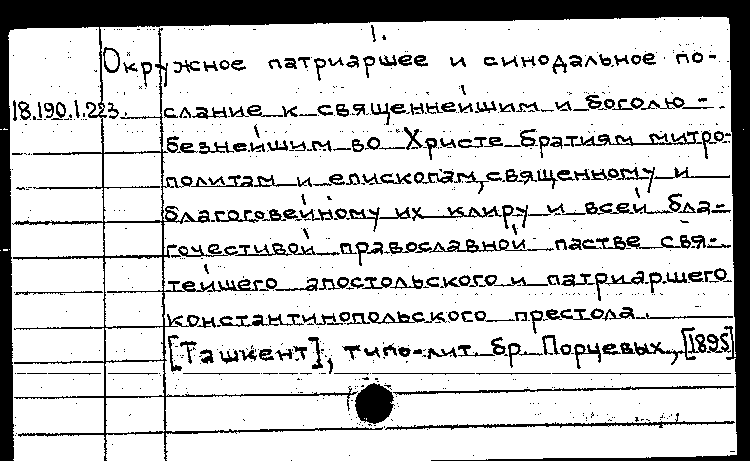 1.
Окружное патриаршее и синодальное по-
18.190.1.223. слание к священнейшим и боголю-
безнейшим во Христе братиям митро-
политам и епископам, священному и
благоговейному их клиру и всей бла-
гочестивой православной пастве свя-
тейшего апостольского и патриаршего
константинопольского престола.
[Ташкент], типо-лит. бр. Порцевых, [1895]